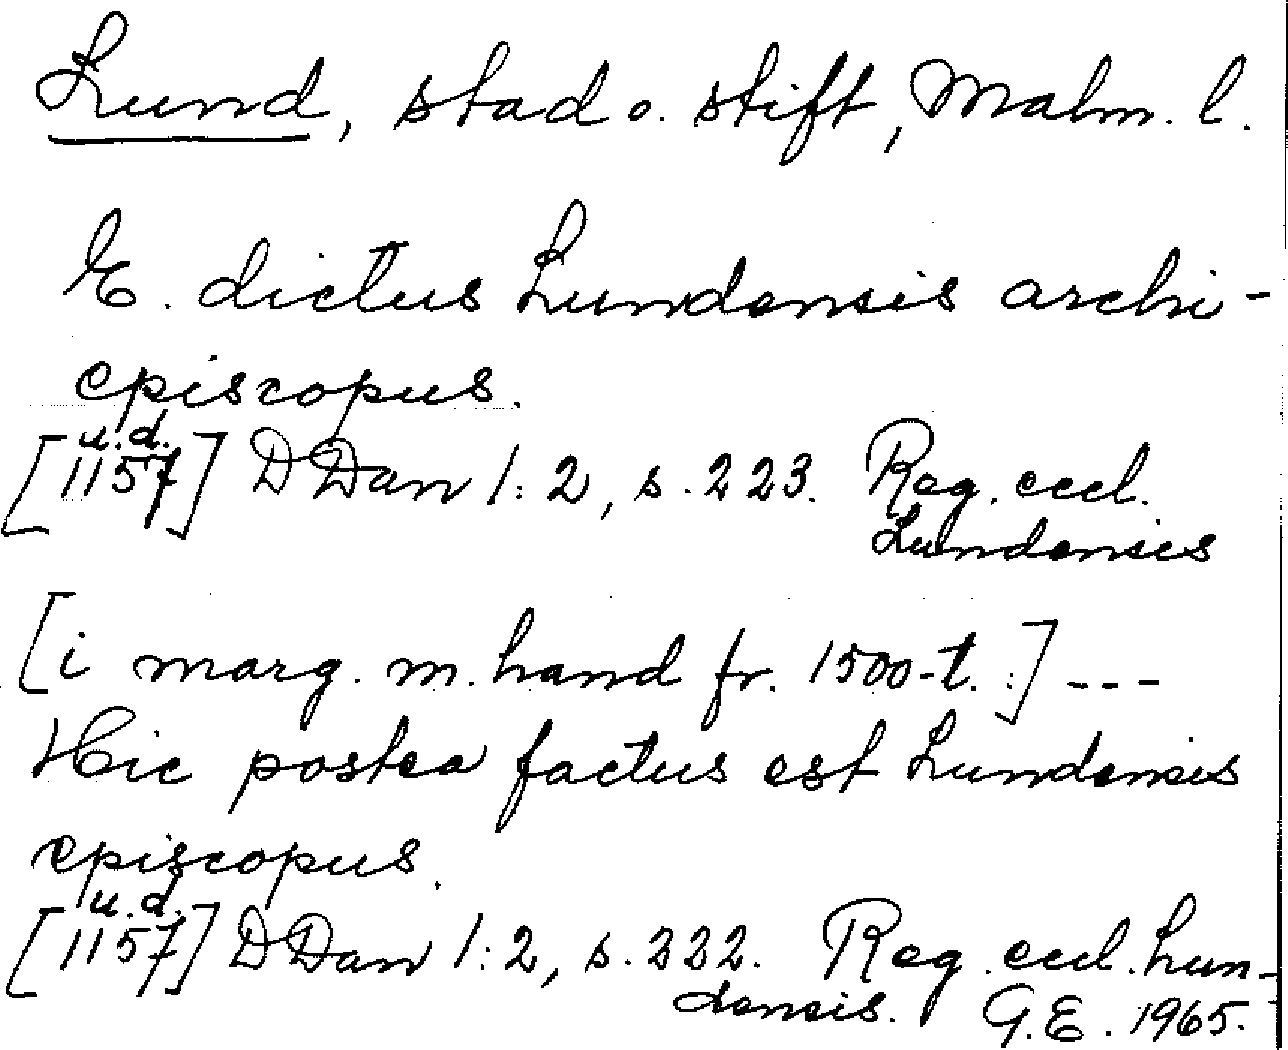 Lund, stad o. stift, Malm. l.
E. dictus Lundensis archi-
episcopus.
[u.d. 1157] DDan 1:2, s. 223. Reg. eccl.
Lundensis
[i marg. m. hand fr. 1500-t.:] ---
Hic postea factus est Lundensis
episcopus.
[u.d. 1157] DDan 1:2, s. 222. Reg. eccl. Lun-
densis. G.E. 1965.